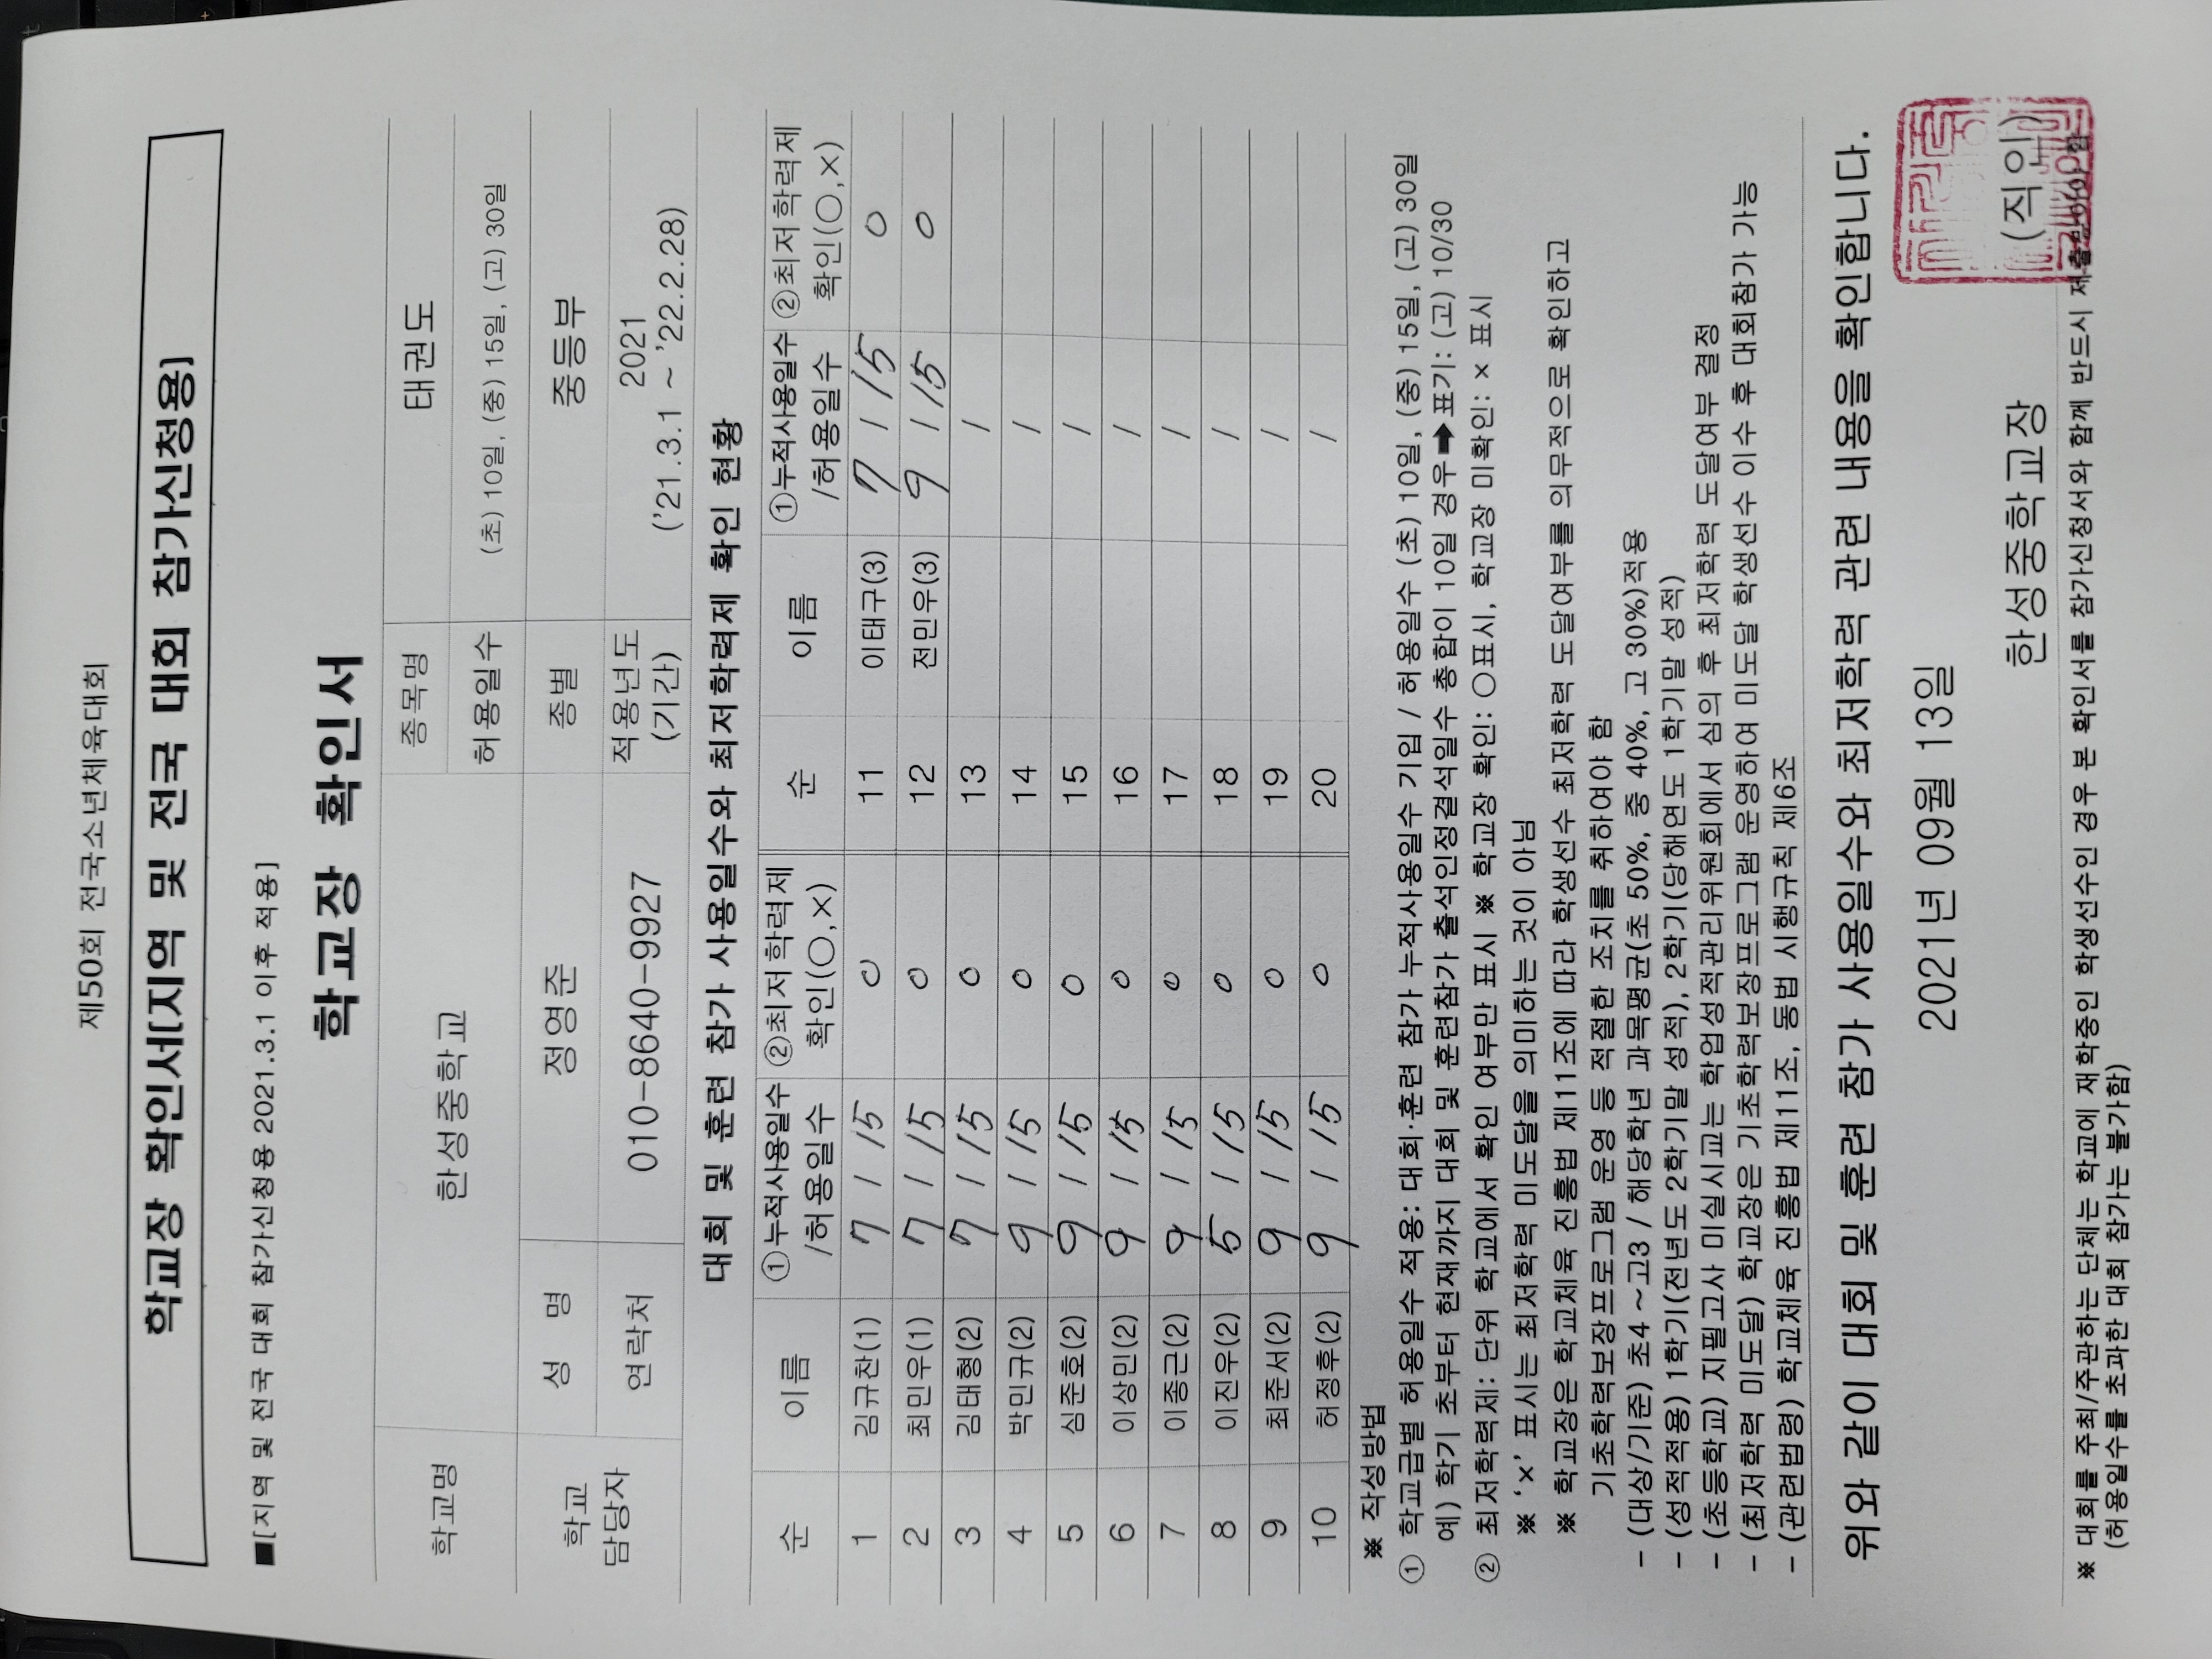 제50회 전국소년체육대회
학교장 확인서[지역 및 전국 대회 참가신청용]
■[지역 및 전국 대회 참가신청용 2021.3.1 이후 적용]
학교장 확인서
학교명 한성중학교 종목명 태권도
허용일수 (초) 10일, (중) 15일, (고) 30일
학교 담당자 성 명 정영준 종별 중등부
연락처 010-8640-9927 적용년도 (기간) 2021 ('21.3.1 ~ '22.2.28)
대회 및 훈련 참가 사용일수와 최저학력제 확인 현황
순 이름 ①누적사용일수 /허용일수 ②최저학력제 확인(○,×) 순 이름 ①누적사용일수 /허용일수 ②최저학력제 확인(○,×)
1 김규찬(1) 7 / 15 ○ 11 이태구(3) 7 / 15 ○
2 최민우(1) 7 / 15 ○ 12 전민우(3) 9 / 15 ○
3 김태형(2) 7 / 15 ○ 13 /
4 박민규(2) 9 / 15 ○ 14 /
5 심준호(2) 9 / 15 ○ 15 /
6 이상민(2) 9 / 15 ○ 16 /
7 이종근(2) 9 / 15 ○ 17 /
8 이진우(2) 5 / 15 ○ 18 /
9 최준서(2) 9 / 15 ○ 19 /
10 허정후(2) 9 / 15 ○ 20 /
※ 작성방법
① 학교급별 허용일수 적용: 대회·훈련 참가 누적사용일수 기입 / 허용일수 (초) 10일, (중) 15일, (고) 30일
예) 학기 초부터 현재까지 대회 및 훈련참가 출석인정결석일수 총합이 10일 경우➡표기: (고) 10/30
② 최저학력제: 단위 학교에서 확인 여부만 표시 ※ 학교장 확인: ○표시, 학교장 미확인: × 표시
※ '×' 표시는 최저학력 미도달을 의미하는 것이 아님
※ 학교장은 학교체육 진흥법 제11조에 따라 학생선수 최저학력 도달여부를 의무적으로 확인하고
기초학력보장프로그램 운영 등 적절한 조치를 취하여야 함
- (대상/기준) 초4 ~ 고3 / 해당학년 과목평균(초 50%, 중 40%, 고 30%)적용
- (성적적용) 1학기(전년도 2학기말 성적), 2학기(당해연도 1학기말 성적)
- (초등학교) 지필고사 미실시교는 학업성적관리위원회에서 심의 후 최저학력 도달여부 결정
- (최저학력 미도달) 학교장은 기초학력보장프로그램 운영하여 미도달 학생선수 이수 후 대회참가 가능
- (관련법령) 학교체육 진흥법 제11조, 동법 시행규칙 제6조
위와 같이 대회 및 훈련 참가 사용일수와 최저학력 관련 내용을 확인합니다.
2021년 09월 13일
한성중학교장 (직인)
※ 대회를 주최/주관하는 단체는 학교에 재학중인 학생선수인 경우 본 확인서를 참가신청서와 함께 반드시 제출받아야 함
(허용일수를 초과한 대회 참가는 불가함)